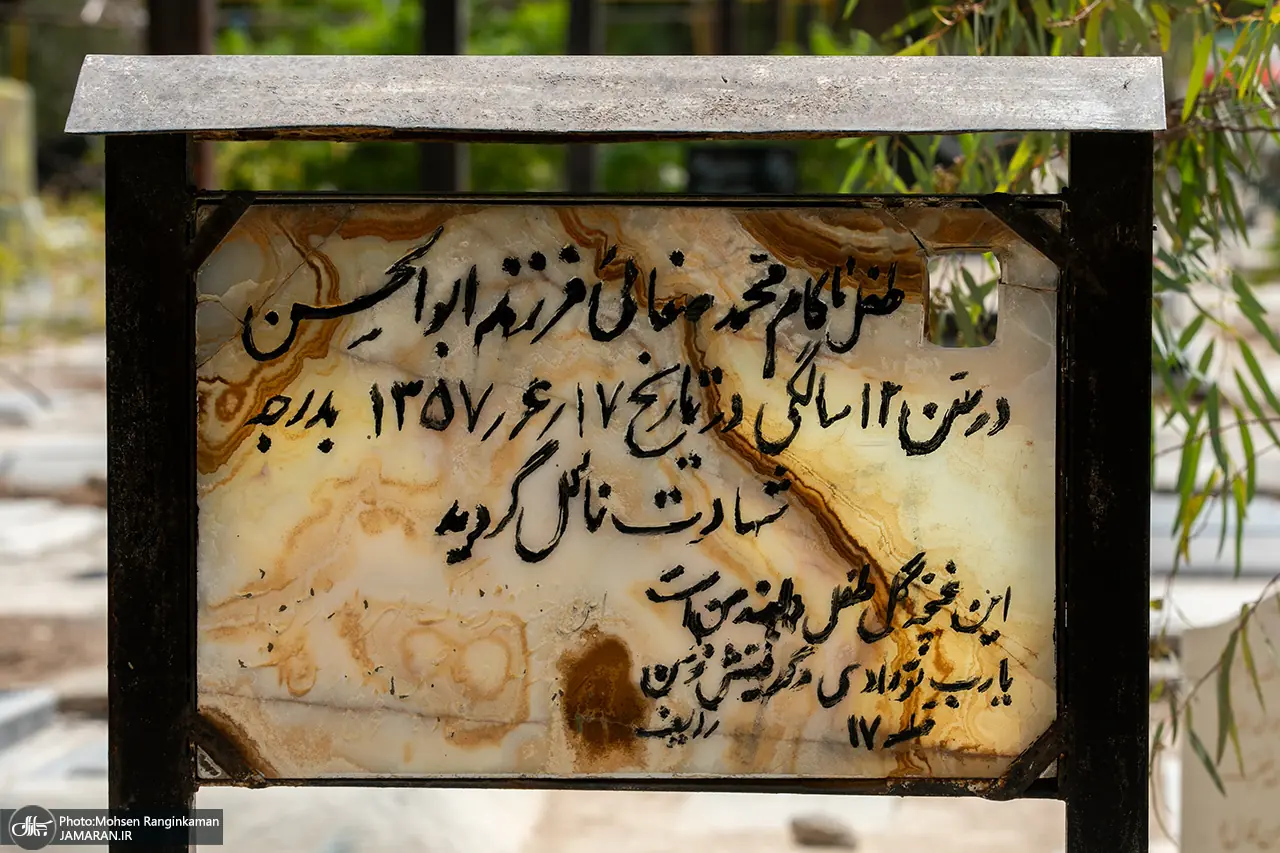 طفل ناکام محمد صفائی فرزند ابوالحسن
در سن ۱۲ سالگی در تاریخ ۱۷ر۶ر۱۳۵۷ بدرجه
شهادت نائل گردید
این غنچه گل طفل دلبند من است
یارب تو دادی و گرفتیش ز من
قطعه ۱۷ ردیف
Photo:Mohsen Ranginkaman
JAMARAN.IR